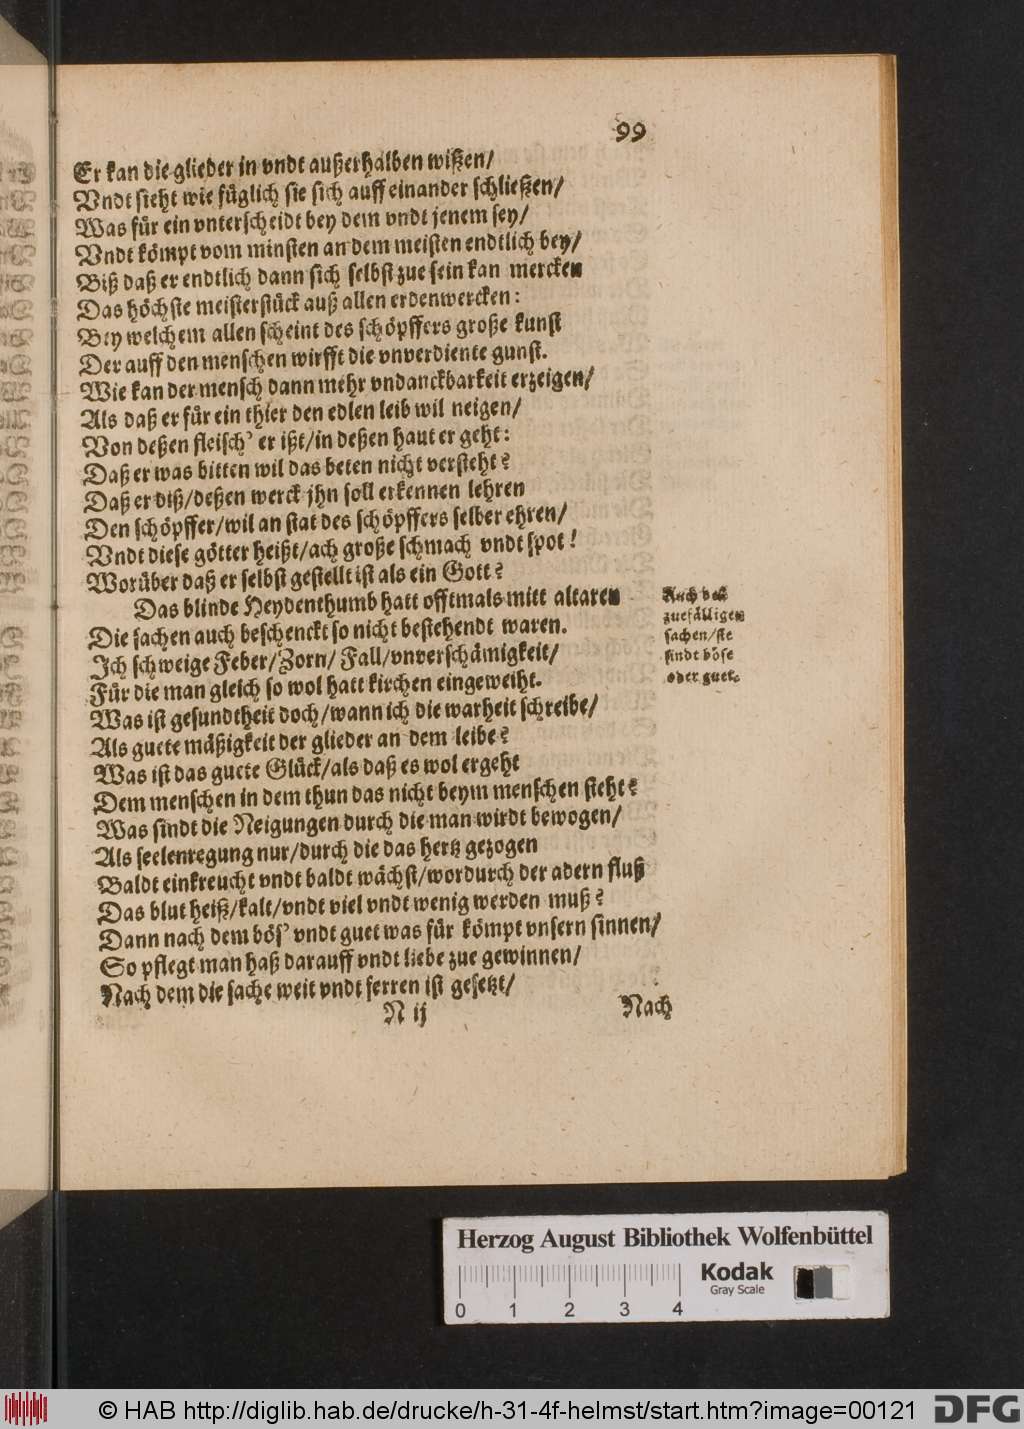 99
Er kan die glieder in vndt außerhalben wißen/
Vndt sieht wie füglich sie sich auff einander schließen/
Was für ein vnterscheidt bey dem vndt jenem sey/
Vndt kömpt vom minsten an dem meisten endtlich bey/
Biß daß er endtlich dann sich selbst zue sein kan mercken
Das höchste meisterstück auß allen erdenwercken:
Bey welchem allen scheint des schöpffers große kunst
Der auff den menschen wirfft die vnverdiente gunst.
Wie kan der mensch dann mehr vndanckbarkeit erzeigen/
Als daß er für ein thier den edlen leib wil neigen/
Von deßen fleisch' er ißt/in deßen haut er geht:
Daß er was bitten wil das beten nicht versteht?
Daß er diß/deßen werck jhn soll erkennen lehren
Den schöpffer/wil an stat des schöpffers selber ehren/
Vndt diese götter heißt/ach große schmach vndt spot!
Worüber daß er selbst gestellt ist als ein Gott?
Das blinde Heydenthumb hatt offtmals mitt altaren
Die sachen auch beschenckt so nicht bestehendt waren.
Ich schweige Feber/Zorn/ Fall/vnverschämigkeit/
Für die man gleich so wol hatt kirchen eingeweiht.
Was ist gesundtheit doch/wann ich die warheit schreibe/
Als guete mäßigkeit der glieder an dem leibe?
Was ist das guete Glück/als daß es wol ergeht
Dem menschen in dem thun das nicht beym menschen steht?
Was sindt die Neigungen durch die man wirdt bewogen/
Als seelenregung nur/durch die das hertz gezogen
Baldt einkreucht vndt baldt wächst/wordurch der adern fluß
Das blut heiß/kalt/vndt viel vndt wenig werden muß?
Dann nach dem bös' vndt guet was für kömpt vnsern sinnen/
So pflegt man haß darauff vndt liebe zue gewinnen/
Nach dem die sache weit vndt ferren ist gesetzt/
N ij
Nach
Auch den
zuefälligen
sachen/sie
sindt böse
oder guet.
Herzog August Bibliothek Wolfenbüttel
Kodak
Gray Scale
0 1 2 3 4
© HAB http://diglib.hab.de/drucke/h-31-4f-helmst/start.htm?image=00121
DFG